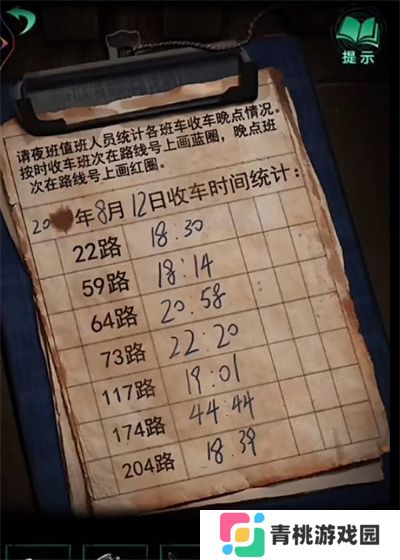 提示
请夜班值班人员统计各班车收车晚点情况。
按时收车班次在路线号上画蓝圈，晚点班
次在路线号上画红圈。
20 年8月12日收车时间统计：
22路 18:30
59路 18:14
64路 20:58
73路 22:20
117路 19:01
174路 44:44
204路 18:39
青桃游戏园